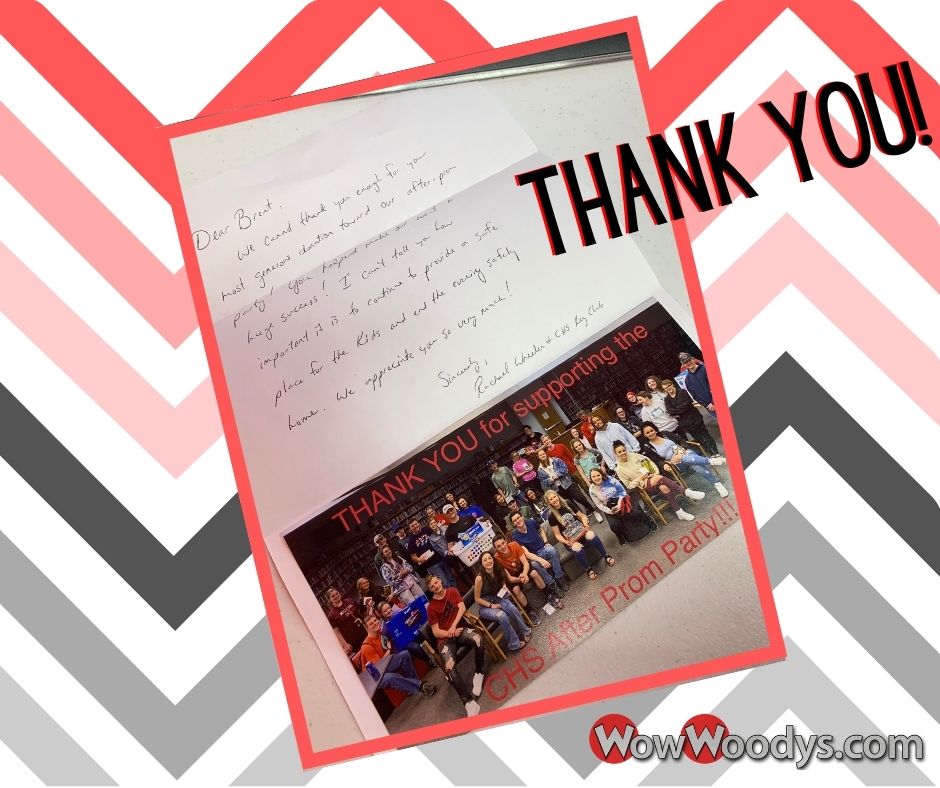 THANK YOU!
Dear Brent,
We cannot thank you enough for your
most generous donation toward our after-prom
party! You helped make our event a
huge success! I can't tell you how
important it is to continue to provide a safe
place for the kids and end the evening safely
home. We appreciate you so very much!
Sincerely,
Rachael Wheeler & CHS Key Club
THANK YOU for supporting the
CHS After Prom Party!!!
WowWoodys.com